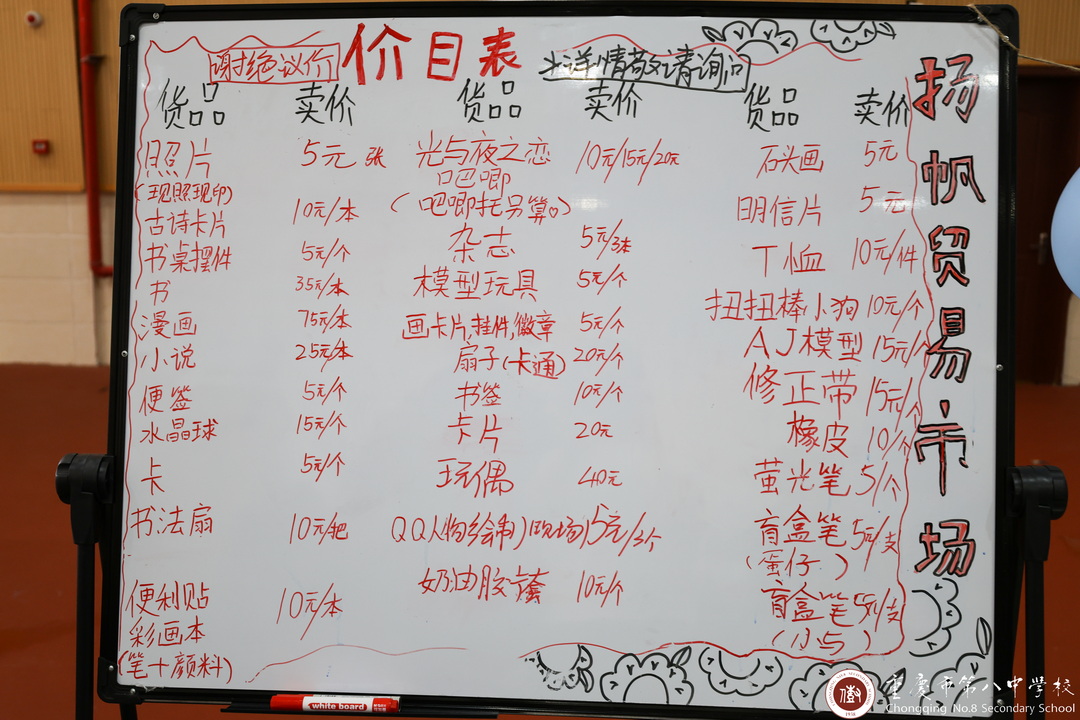 谢绝议价 价目表 详情敬请询问
货品 卖价 货品 卖价 货品 卖价
照片 5元 张
(现照现印)
古诗卡片 10元/本
书桌摆件 5元/个
书 35元/本
漫画 75元/本
小说 25元/本
便签 5元/个
水晶球 15元/个
卡 5元/个
书法扇 10元/把
便利贴 10元/本
彩画本
(笔+颜料)
光与夜之恋 10元/15元/20元
吧唧
(吧唧托另算。)
杂志 5元/3本
模型玩具 5元/个
画卡片,挂件,徽章 5元/个
扇子(卡通) 20元/个
书签 10元/个
卡片 20元
玩偶 40元
QQ人物绘制)现场 15元/3个
奶油胶 10元/个
石头画 5元
明信片 5元
T恤 10元/件
扭扭棒小狗 10元/个
AJ模型 15元/个
修正带 15元/个
橡皮 10/个
萤光笔 5/个
盲盒笔 5元/支
(蛋仔)
盲盒笔 5元/支
扬帆贸易市场
white board
重庆市第八中学校
Chongqing No.8 Secondary School